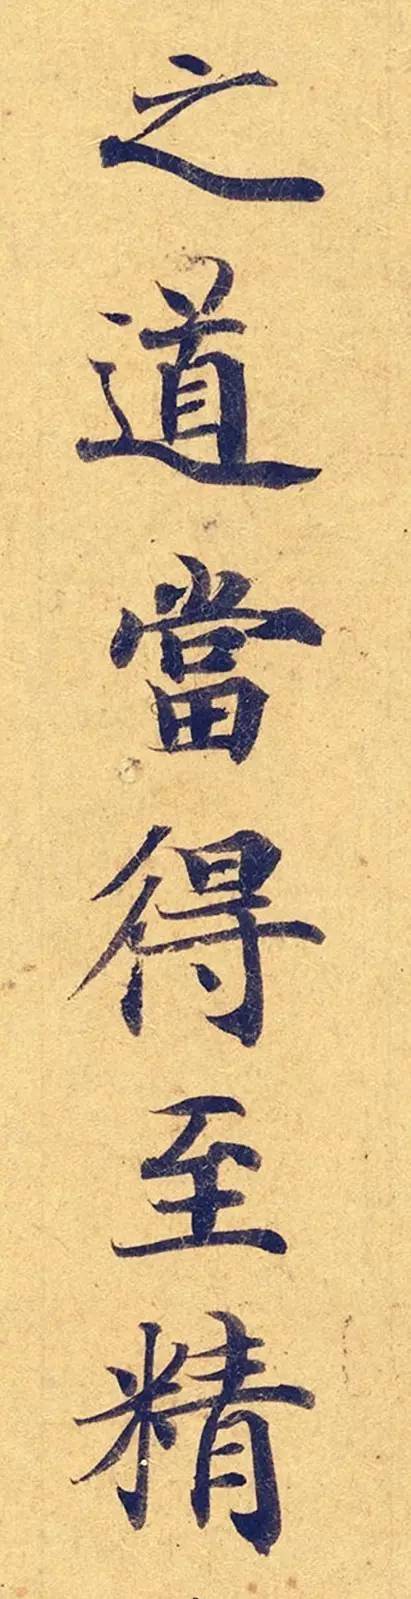 之道當得至精